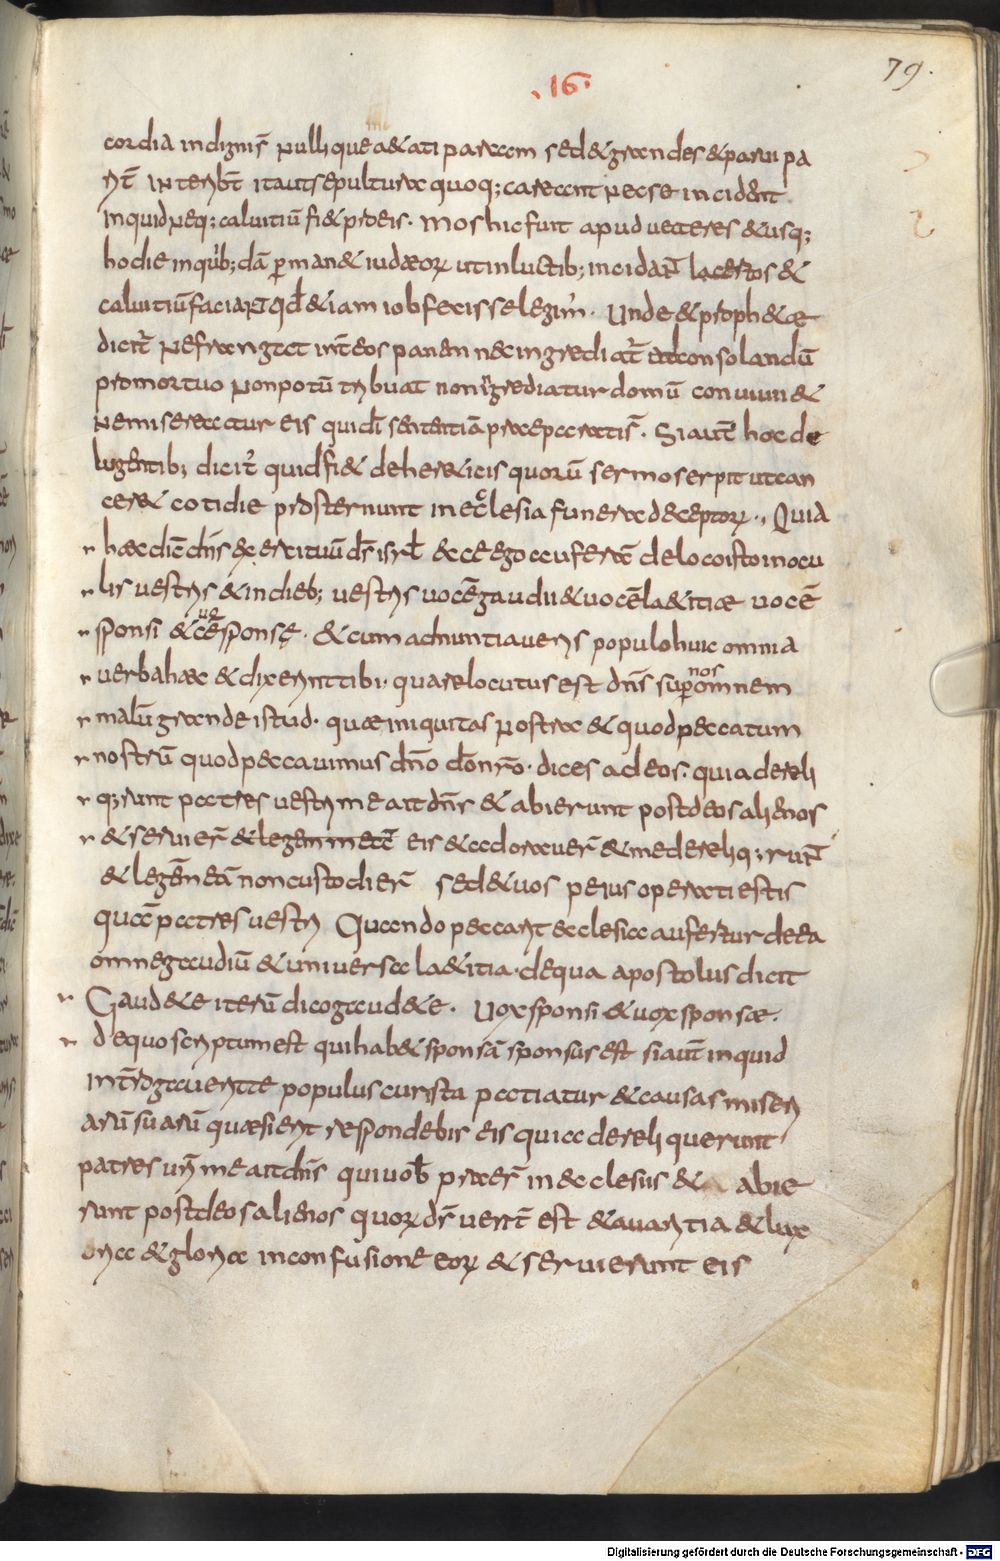 79.
.16.
cordia indignis nulli que a&ati parcam sed & grandes & parui pa
rit̄ int̄erib̄t ita ut sepulturae quoq; careant nec se incident
inquid neq; caluitiū fi& pro eis. mos hic fuit apud ueteres & usq;
hodie in quib; dā p̄man& iudæoꝝ ut in luctib; incidant̄ lacertos &
caluitiū faciant qd̄ & iam iob fecisse legim'. Unde & proph&a
dicit' ne frangat int̄ eos panem nec ingrediat' ad consolandū
pro mortuo non potū tribuat non ingrediatur domū conuiuii &
nemisereatur eis qui di sententiā præceperat is. Si aut̄ hoc de
lugentib; dicit' quid fi& de her&icis quorū sermo serpit ut can
cer & cotidie prosternunt in ecclesia funera deceptoꝝ., Quia
hæc dic̄ dn̄s exercituū ds̄ isrl̄ ecce ego auferā de loco isto in ocu
lis uestris & in dieb; uestris uocē gaudii & uocē la&itiæ uocē
sponsi & uocē sponsę. & cum adnuntiaueris populo huic omnia
uerba hæc & dixerint tibi. quare locutus est dn̄s sup nos omnem
malū grande istud. quæ iniquitas nostra & quod peccatum
nostrū quod peccauimus dn̄o do nrō. dices ad eos. quia dereli
q;runt patres uestri me ait dn̄s & abierunt post deos alienos
& seruier̄ & legem meā eis & adorauer̄ & me dereliq;runt̄
& legēm eā non custodier̄ sed & uos peius operati estis
quā patres uestri Quando peccant ecclesiæ aufertur de ea
omne gaudiū & uniuersa la&itia. de qua apostolus dicit
Gaud&e iterū dico gaud&e. Uox sponsi & uox sponsæ.
de quo scriptum est qui hab& sponsā sponsus est si aut̄ inquid
int̄rogauerit te populus cur ista patiatur & causas miseri
arū suarū quæsierit respondebis eis quia dereliquerunt
patres ur̄i me ait dn̄s qui uob̄ præer̄ in ecclesiis & abie
runt post deos alienos quoꝝ ds̄ uent̄ est & auaritia & lux
oria & gloria in confusione eoꝝ & seruierunt eis
Digitalisierung gefördert durch die Deutsche Forschungsgemeinschaft - DFG